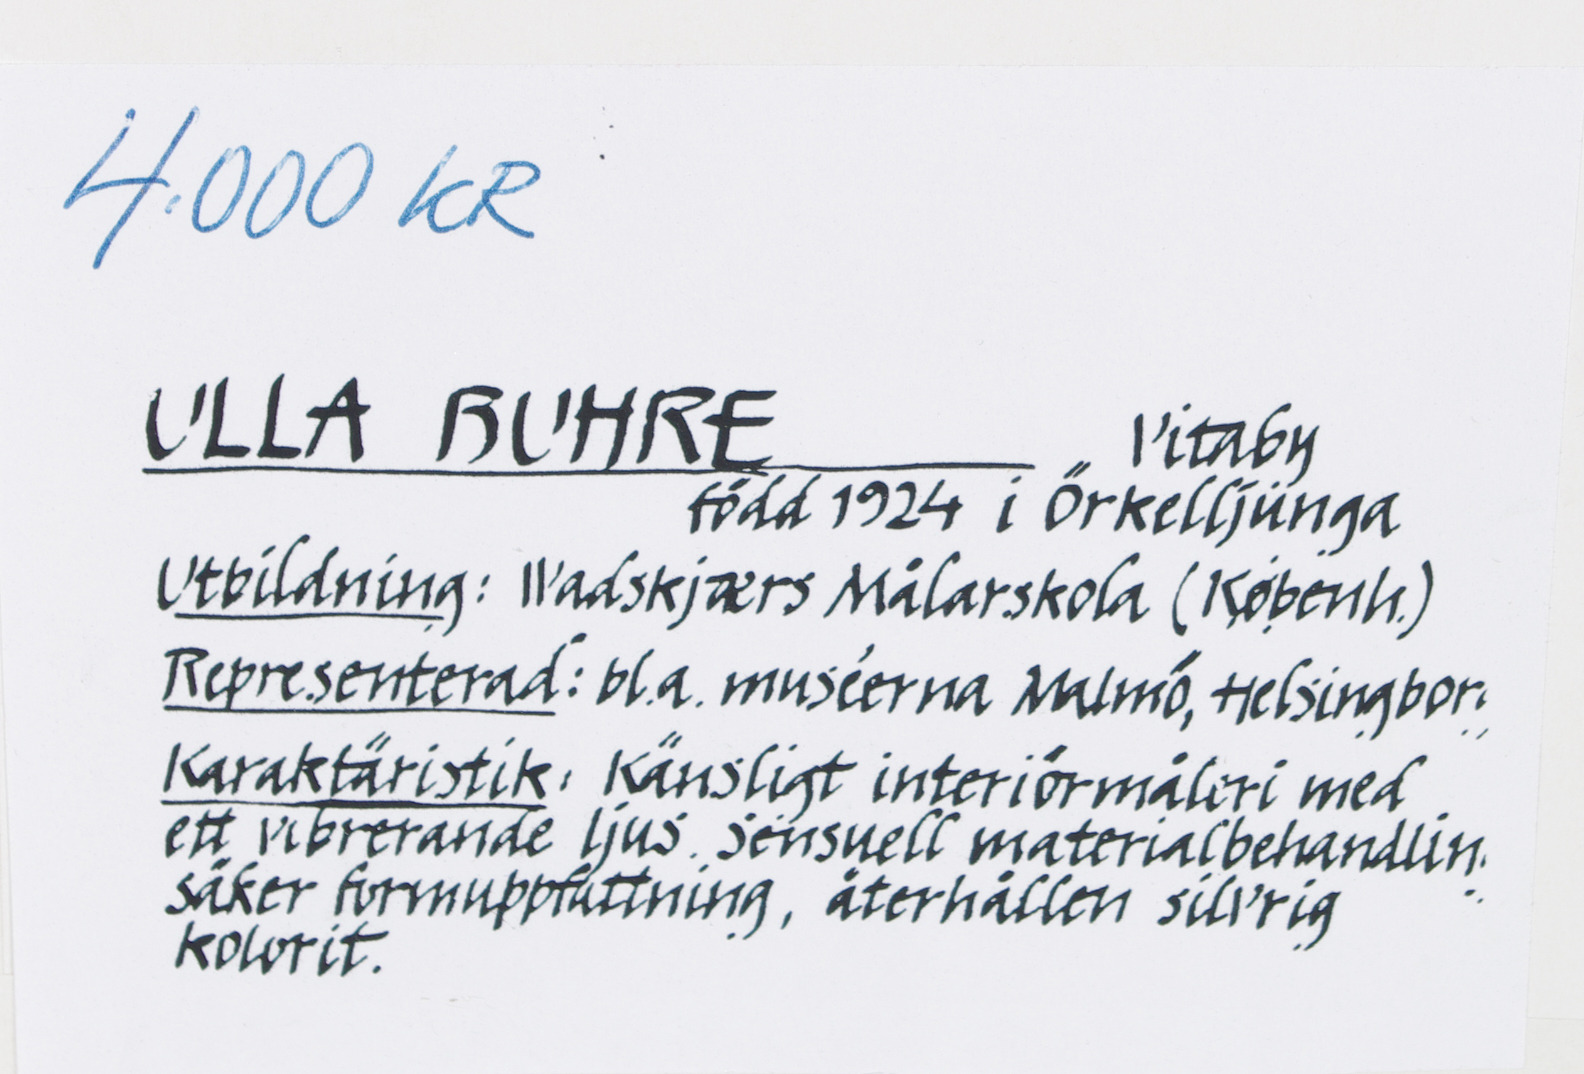 4.000 KR
ULLA BUHRE Vitaby
född 1924 i Örkelljünga
Utbildning: Wadskjærs Målarskola (Københ.)
Representerad: bl.a. muséerna Malmö, Helsingbor
Karaktäristik: Känsligt interiörmåleri med
ett vibrerande ljus. Sensuell materialbehandlin
säker formuppfattning, återhållen silvrig
kolorit.